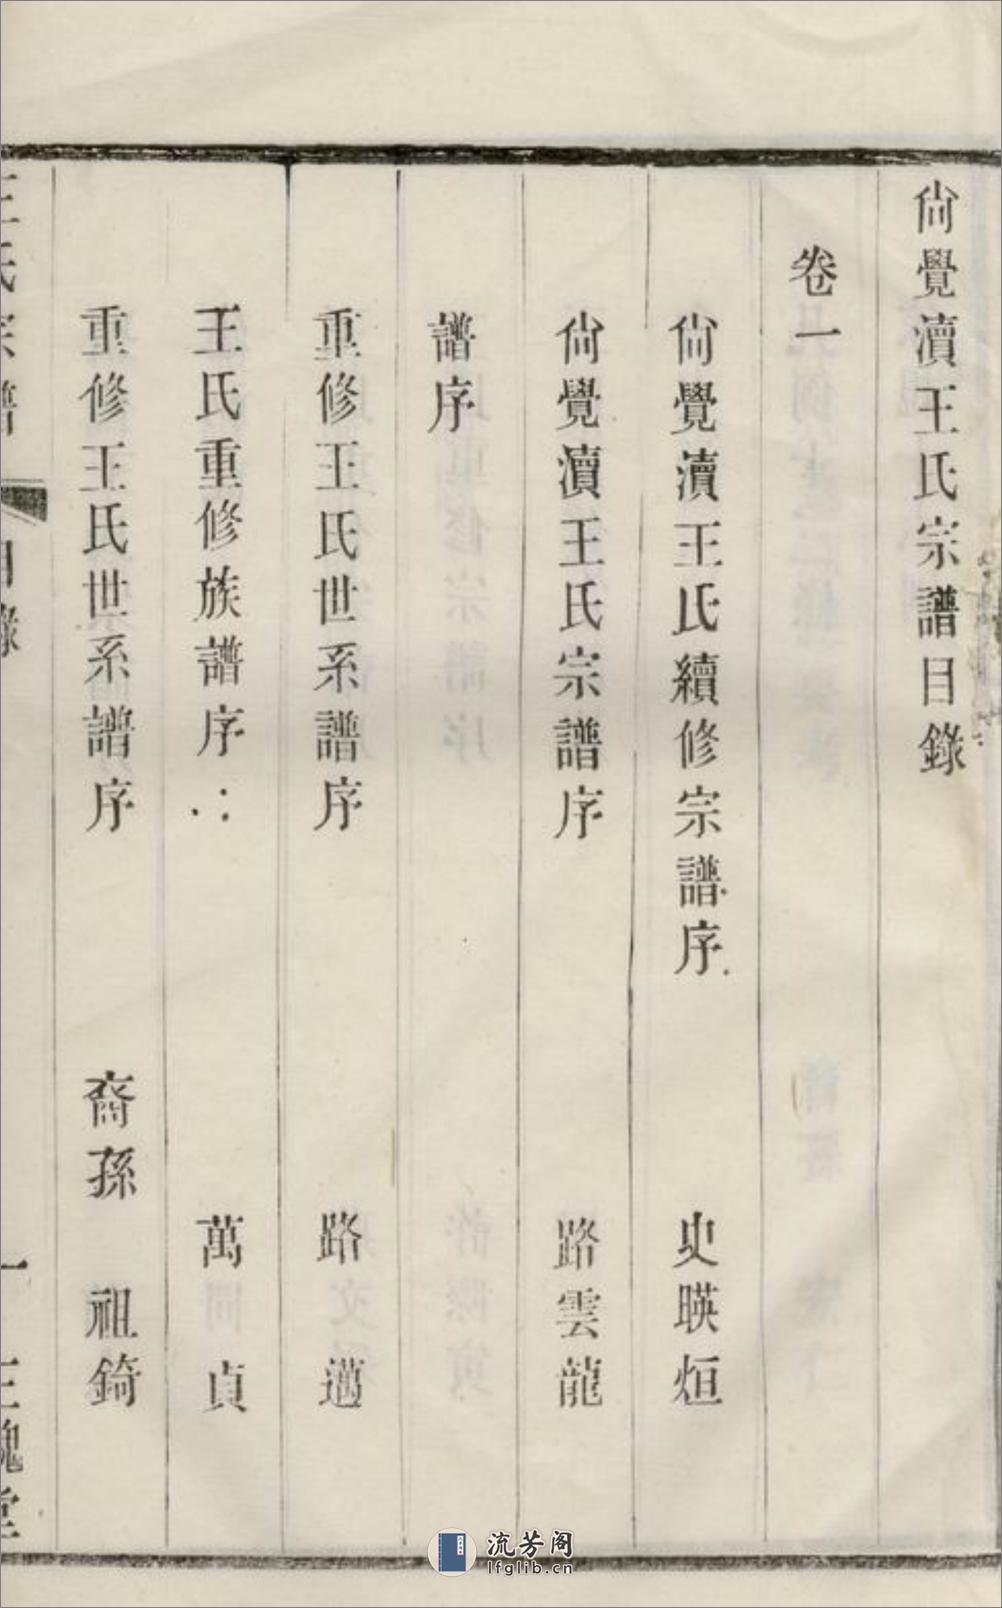 尙覺瀆王氏宗譜目錄
卷一
尙覺瀆王氏續修宗譜序 史暎烜
尙覺瀆王氏宗譜序 路雲龍
譜序
重修王氏世系譜序 路邁
王氏重修族譜序 萬貞
重修王氏世系譜序 裔孫 祖錡
王氏宗譜 目錄 一 三槐堂
流芳阁
lfglib.cn